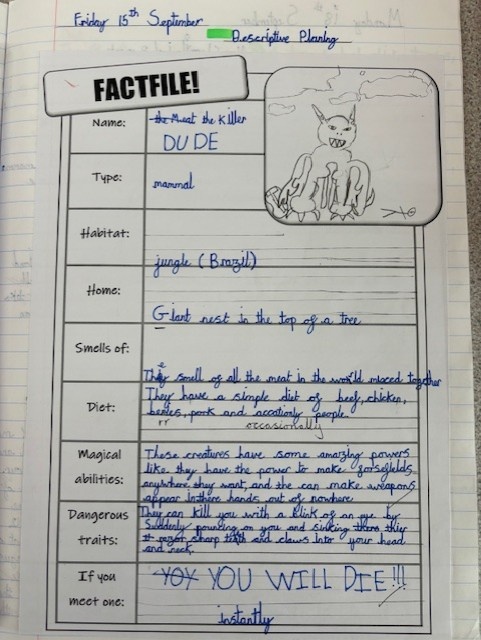 Friday 15th September
Descriptive Planing
FACTFILE!
Name:
the Meat the Killer
DUDE
Type:
mammal
Habitat:
jungle (Brazil)
Home:
Giant nest in the top of a tree
Smells of:
They smell of all the meat in the world mixced together
Diet:
They have a simple diet of beef, chicken,
berries, pork and accationly people.
rr occasionally
Magical abilities:
These creatures have some amazing powers
like they have the power to make forsefields
anywhere they want, and the can make weapons
appear in there hands out of nowhere
Dangerous traits:
They can kill you with a blink of an eye by
Suddenly pouncing on you and sinking there thier
razor sharp teeth and claws into your head
and neck.
If you meet one:
YOY YOU WILL DIE!!!
instantly